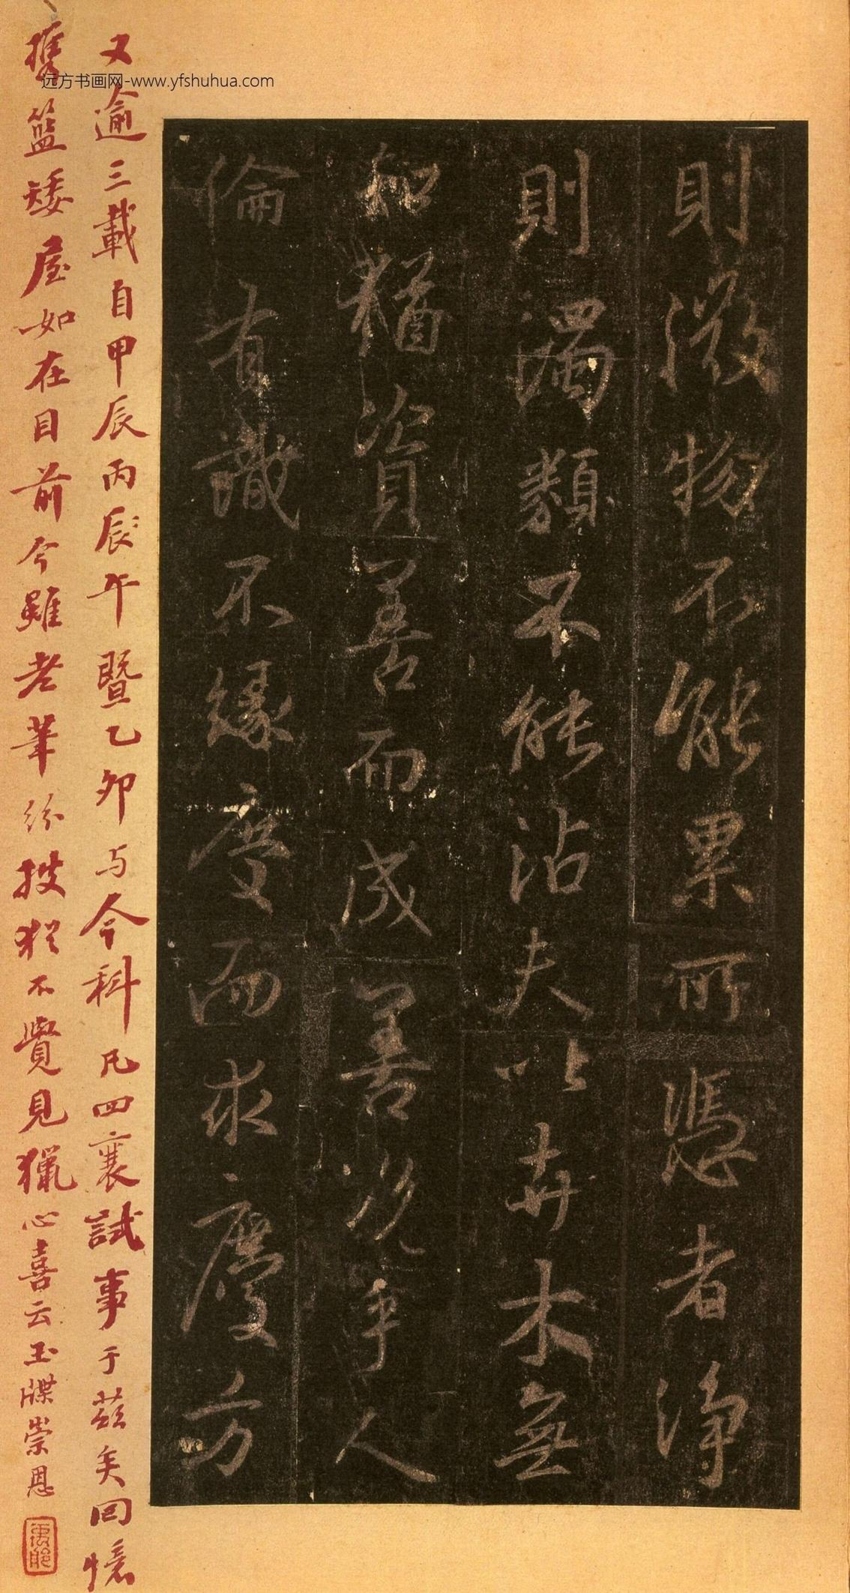 远方书画网-www.yfshuhua.com
則微物不能累所憑者淨
則濁類不能沾夫以卉木無
知猶資善而成善況乎人
倫有識不緣慶而求慶方
又逾三載自甲辰丙辰午暨乙卯与今科凡四襄試事于茲矣回憶
攜籃矮屋如在目前今雖老筆紛披猶不覺見獵心喜云玉牒崇恩